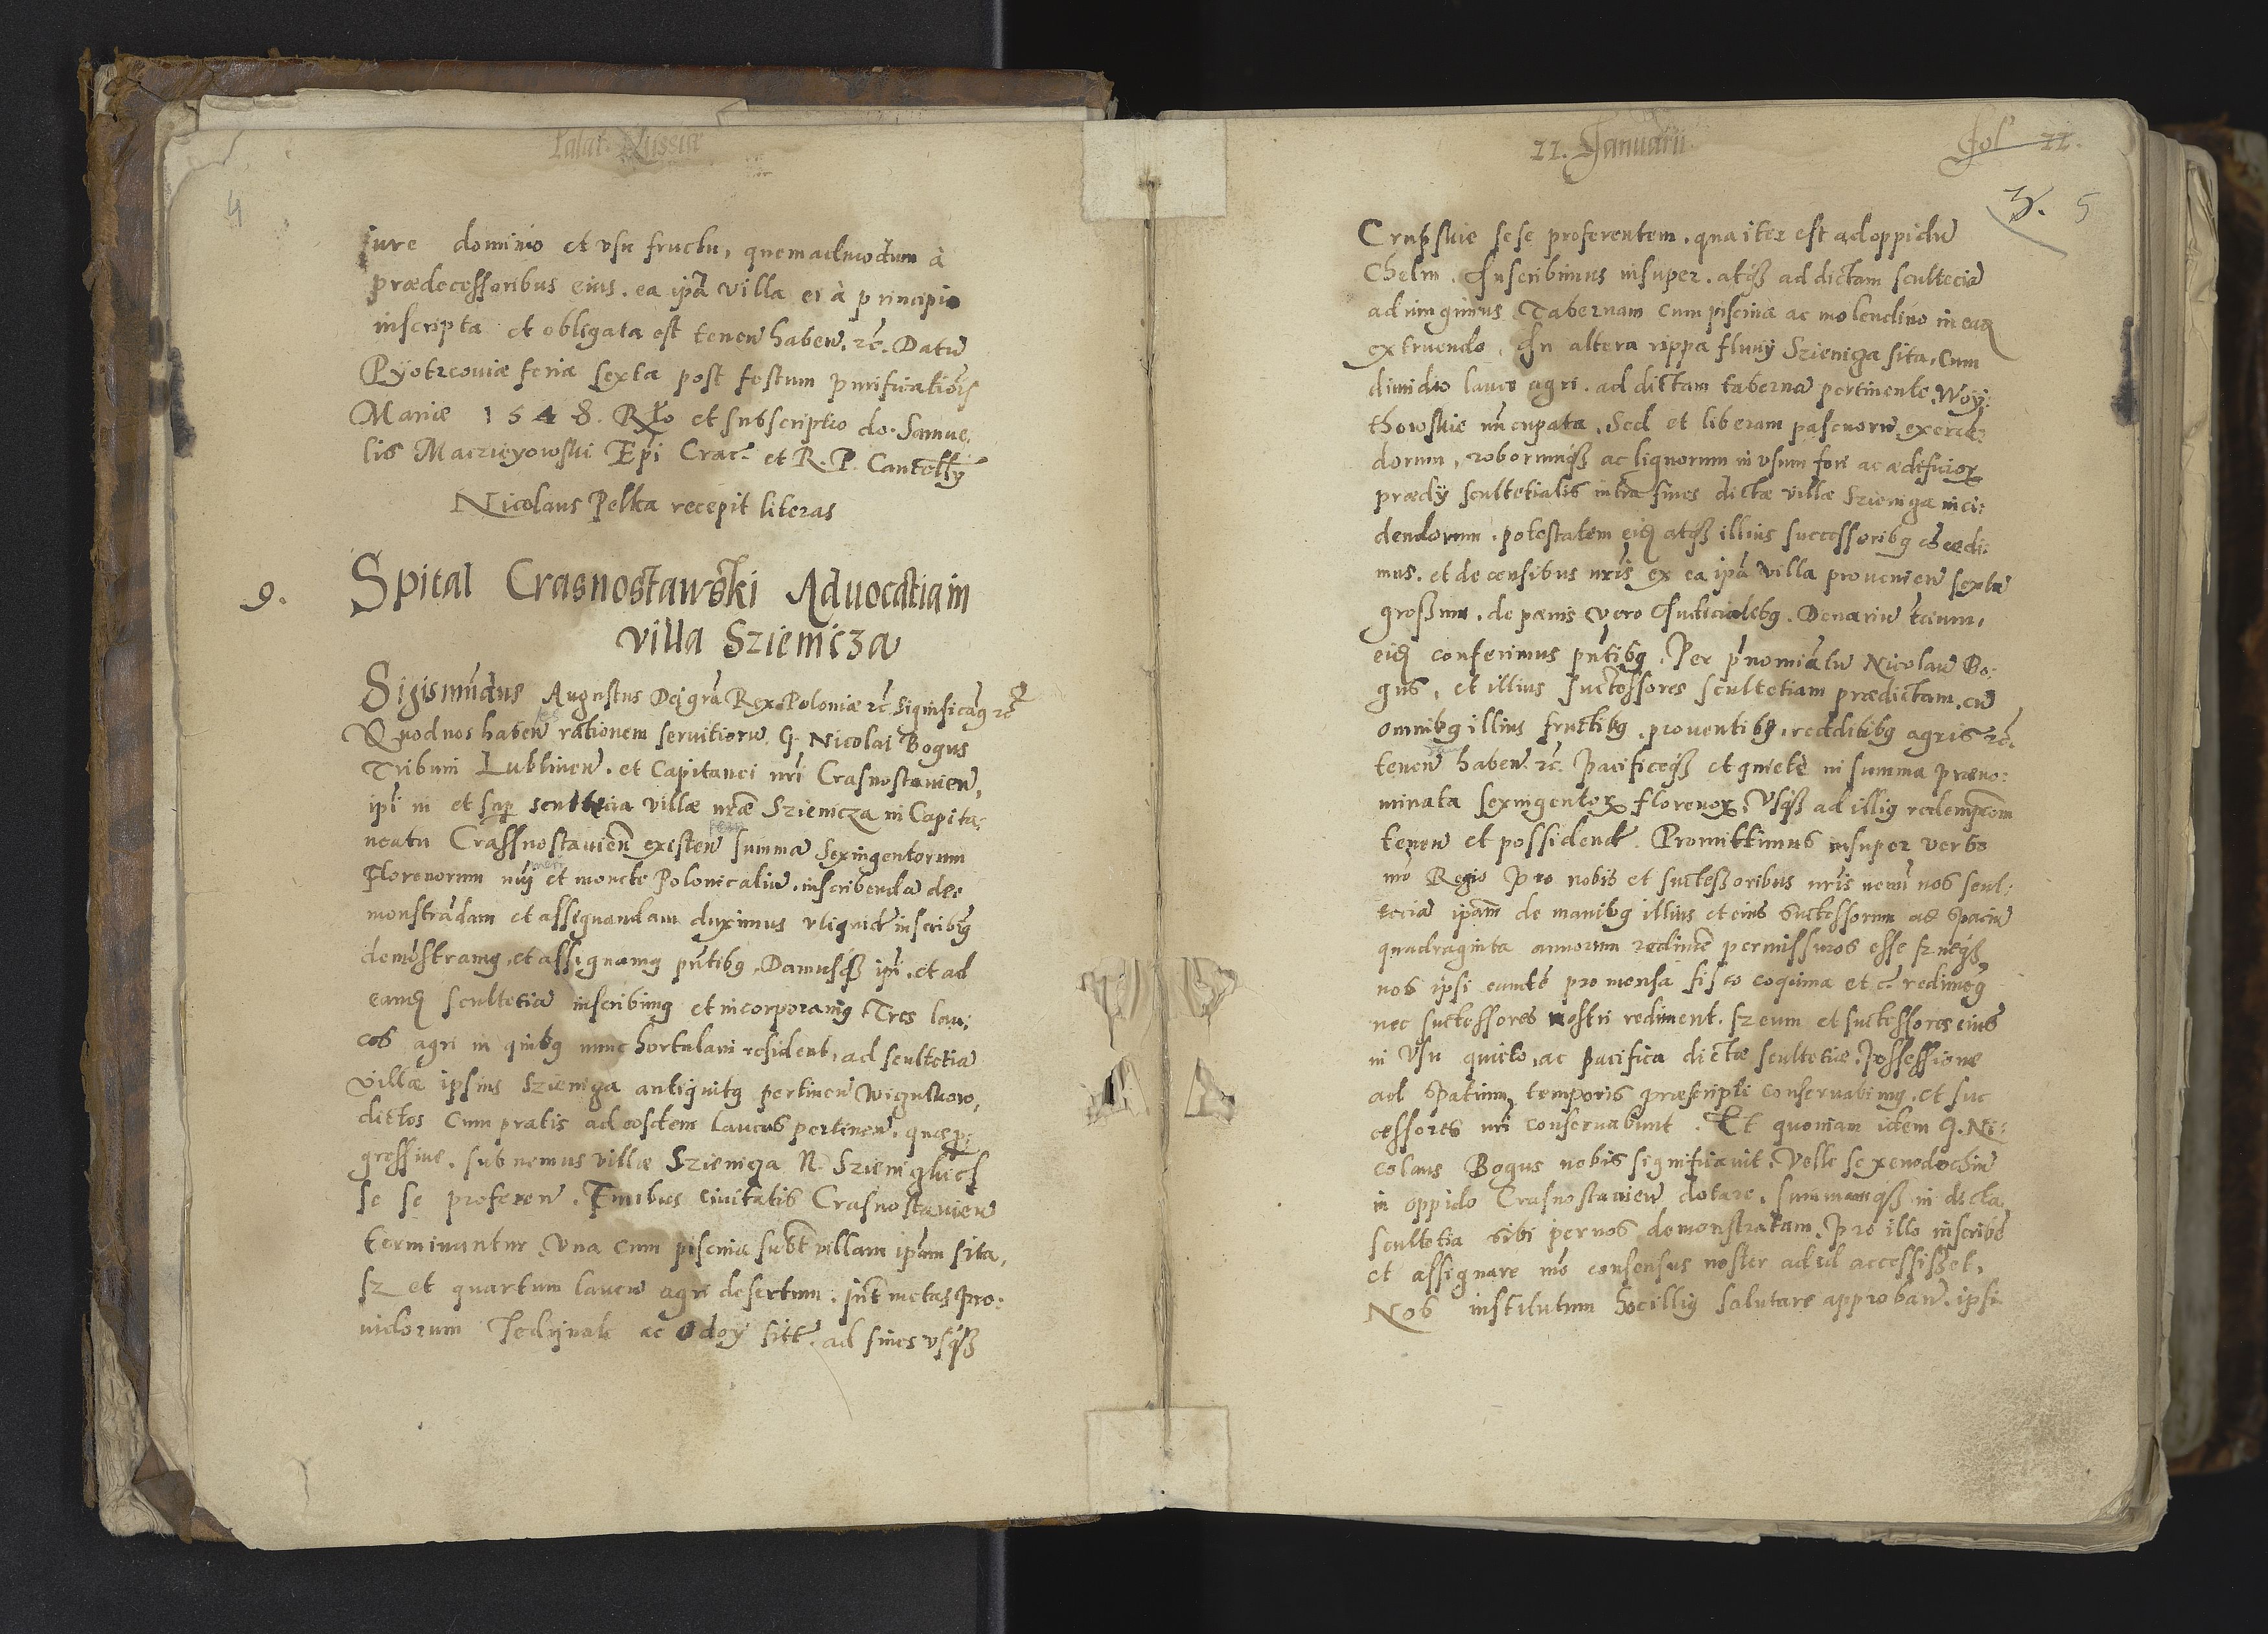 Palat. Russiæ
4
Jure dominio et vsu fructu, quemadmodum à
prædecessoribus eius. ea ipã villa ei à principio
inscripta et obligata est teneñ habeñ. rc̃. Datũ
Pyotrcoviæ feria sexta post festum purificatiõis
Mariæ 1548. Rło et subscriptio do. Samue:
lis Macziejowski Epi Crac. et R. P. Cancellỹ
Nicolaus Pelka recepit literas
9. Spital Crasnostawski Aduocatia in
villa Sziemicza
Sigismũdus Augustus Dei grã Rex Poloniæ rc̃. Significãg rc̃
Quod nos habeñ rationem seruitiorũ G. Nicolai Bogus
Tribuni Lublineñ. et Capitanei nrĩ Crasnostavieñ,
ipĩ in et sup scultecia villæ nræ Szienicza in Capita:
neatu Crassnostavieñ existeñ summã Sexingentorum
Florenorum nuĩ et monete Polonicaliũ. inscribendã de:
monstrãdam et assignandam duximus vtiquidẽ inscribĩg
demõstramg, et assignamg pñtibg, Damusqß ipĩ. et ad
eamđ scultetiã inscribimg et incorporamg Tres lau:
cos agri in quibg nunc hortulani resident, ad scultetiã
villæ ipsius Szieniga antiquitg pertineñ Wigultow,
dictos cum pratis ad eosdem laneos pertineñ. quæ p:
gressiue. sub nemus villæ Szieniga N. Szienighiels
se se profereñ. Finibus ciuitatis Crasnostavieñ
terminantur. Vna cum piscina subt villam ipãm sita,
sz et quartum laneũ agri desertum. juxt metas Pro:
uidorum Jedynak ac Odoy sitt. ad fines vsqß
11. Januarii.
Fol 11.
3. 5
Crupskie sese proferentem. qua iter est ad oppidũ
Chelm. Inscribimus insuper. atqß ad dictam sculteciã
adiungimus Tabernam cum piscina ac molendino in eađ
extruendo. In altera rippa fluuij Szieniga sita. Cum
dimidio laneo agri. ad dictam tabernã pertinente. Woy:
thowskie nũcupata. Sed et liberam pascuorũ exercẽ:
dorum, roborumqß ac lignorum in vsum fori ac ædificior
prædij scultetialis intra fines dictæ villæ Szieniga inci:
dendorum. potestatem eiđ atqß illius successoribg cõcedi:
mus. et de censibus nrĩs ex ea ipã villa provenieñ sextũ
grossum. de pænis vero Judicialibg. Denariũ tcium,
eiđ conferimus pñtibg. Per pñnomiãtũ Nicolaũ Bo:
gus, et illius successores scultetiam prædictam. cũ
omnibg illius fructibg. proventibg. redditibg agris rc̃.
teneñ habeñ. rc̃. Pacificeqß et quietè in summa præno:
minata sexingentor florenor. Vsqß ad illig redemptiom
teneñ et possidend. Promittimus insuper verbo
nr̃o Regio Pro nobis et successoribus nrĩs nemĩ nos scul:
teciã ipãm de manibg illius et eius successorum ad spaciũ
quadraginta annorum redimẽ permissuros esse sz neqß
nos ipsi eamtẽ pro mensa fisco coquina et c redimeg
nec successores nostri rediment. sz eum et successores eius
in vsu quieto, ac pacifica dictæ scultetiæ. Possessione
ad spatium temporis præscripti conseruabimg. et suc
cessores nrĩ conseruabunt. Et quoniam idem G. Ni:
colaus Bogus nobis significavit. Velle se xenodochiũ
in oppido Crasnostavieñ dotare. summamqß in dicta
scultetia sibi per nos demonstratam. Pro illo inscribẽ
et assignare mõ consensus noster ad id accessisset.
Nos institutum hoc illig salutare approbañ. ipsi